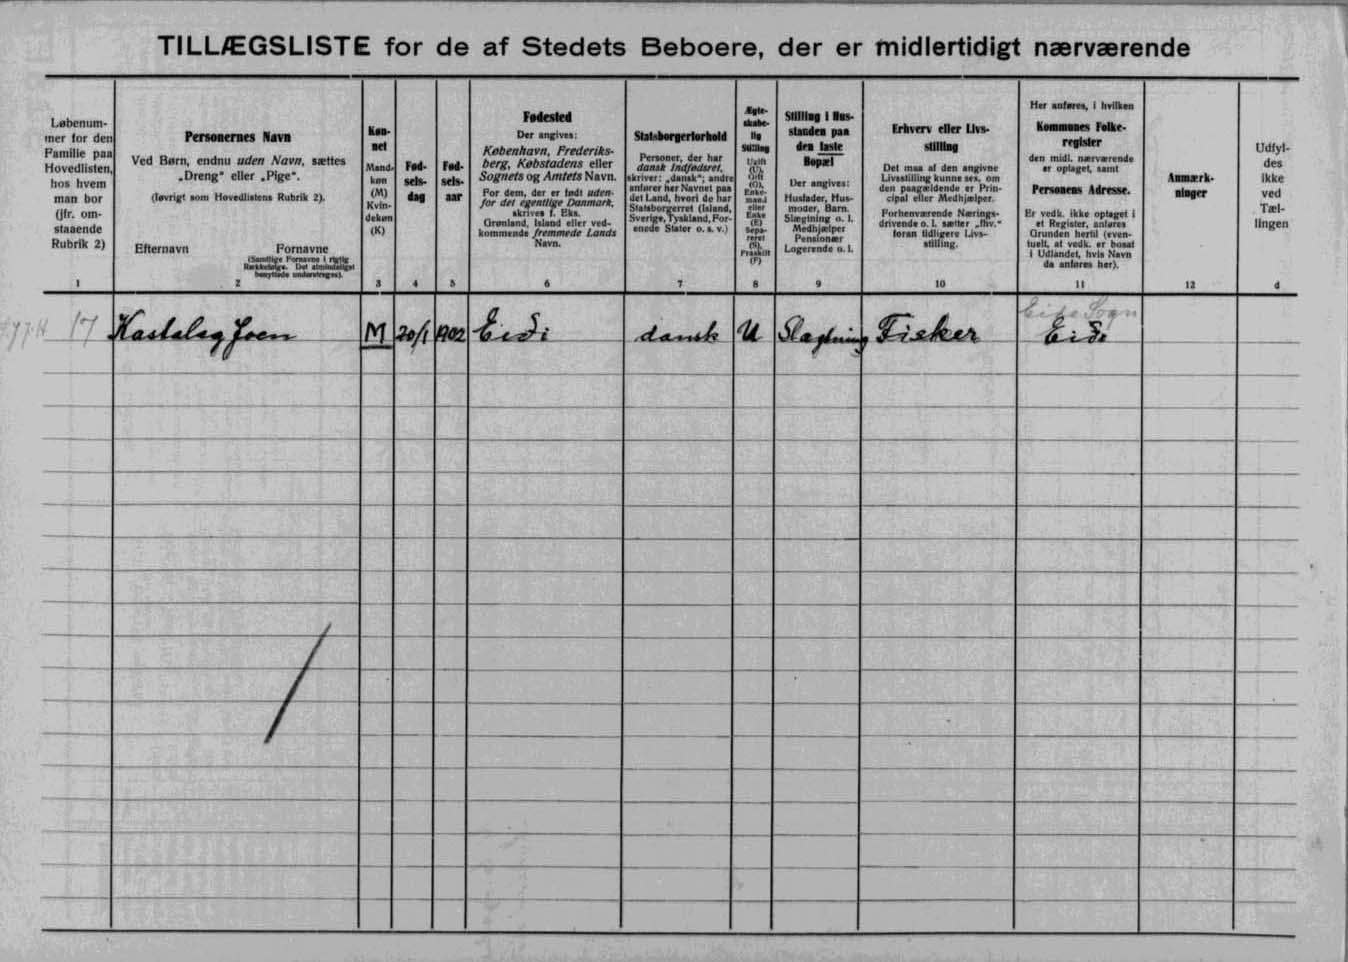 TILLÆGSLISTE for de af Stedets Beboere, der er midlertidigt nærværende
Løbenum-
mer for den
Familie paa
Hovedlisten,
hos hvem
man bor
(jfr. om-
staaende
Rubrik 2)
1
Personernes Navn
Ved Børn, endnu uden Navn, sættes
„Dreng“ eller „Pige“.
(Iøvrigt som Hovedlistens Rubrik 2).
Efternavn Fornavne
(Samtlige Fornavne i rigtig
Rækkefølge. Det almindeligst
benyttede understreges).
2
Køn-
net
Mand-
køn
(M)
Kvin-
dekøn
(K)
3
Fød-
sels-
dag
4
Fød-
sels-
aar
5
Fødested
Der angives:
København, Frederiks-
berg, Købstadens eller
Sognets og Amtets Navn.
For dem, der er født uden-
for det egentlige Danmark,
skrives f. Eks.
Grønland, Island eller ved-
kommende fremmede Lands
Navn.
6
Statsborgerforhold
Personer, der har
dansk Indfødsret,
skriver: „dansk“; andre
anfører her Navnet paa
det Land, hvori de har
Statsborgerret (Island,
Sverige, Tyskland, For-
enede Stater o. s. v.)
7
Ægte-
skabe-
lig
Stilling
Ugift
(U),
Gift
(G),
Enke-
mand
eller
Enke
(E)
Sepa-
reret
(S),
Fraskilt
(F)
8
Stilling i Hus-
standen paa
den faste
Bopæl
Der angives:
Husfader, Hus-
moder, Barn,
Slægtning o. l.
Medhjælper
Pensionær
Logerende o. l.
9
Erhverv eller Livs-
stilling
Det maa af den angivne
Livsstilling kunne ses, om
den paagældende er Prin-
cipal eller Medhjælper.
Forhenværende Nærings-
drivende o. l. sætter „fhv.“
foran tidligere Livs-
stilling.
10
Her anføres, i hvilken
Kommunes Folke-
register
den midl. nærværende
er optaget, samt
Personens Adresse.
Er vedk. ikke optaget i
et Register, anføres
Grunden hertil (even-
tuelt, at vedk. er bosat
i Udlandet, hvis Navn
da anføres her).
11
Anmærk-
ninger
12
Udfyl-
des
ikke
ved
Tæl-
lingen
d
Eide Sogn
17 Kastalag Joen M 20/1 1902 Eiði dansk U Slægtning Fisker Eiði